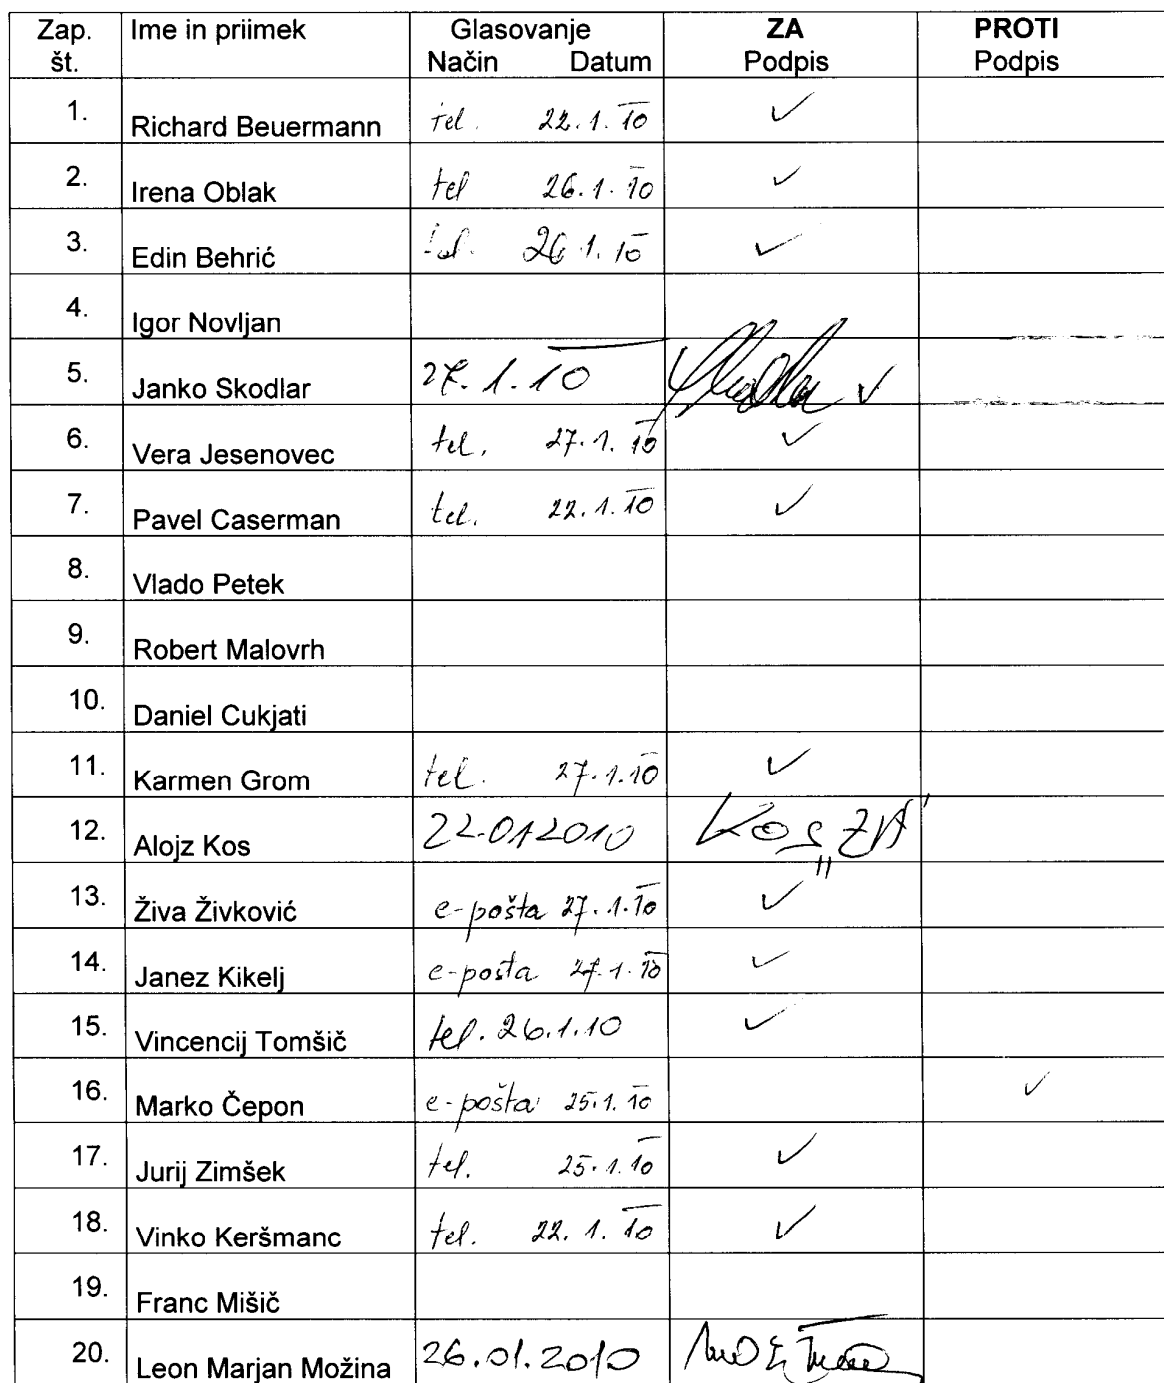 Zap. Ime in priimek Glasovanje ZA PROTI
št. Način Datum Podpis Podpis
1. Richard Beuermann tel. 22.1.10 ✓
2. Irena Oblak tel 26.1.10 ✓
3. Edin Behrić tel. 26.1.10 ✓
4. Igor Novljan
5. Janko Skodlar 27.1.10 ✓
6. Vera Jesenovec tel. 27.1.10 ✓
7. Pavel Caserman tel. 22.1.10 ✓
8. Vlado Petek
9. Robert Malovrh
10. Daniel Cukjati
11. Karmen Grom tel. 27.1.10 ✓
12. Alojz Kos 22.012010 Kos ZA
13. Živa Živković e-pošta 27.1.10 ✓
14. Janez Kikelj e-pošta 27.1.10 ✓
15. Vincencij Tomšič tel. 26.1.10 ✓
16. Marko Čepon e-pošta 25.1.10 ✓
17. Jurij Zimšek tel. 25.1.10 ✓
18. Vinko Keršmanc tel. 22.1.10 ✓
19. Franc Mišič
20. Leon Marjan Možina 26.01.2010